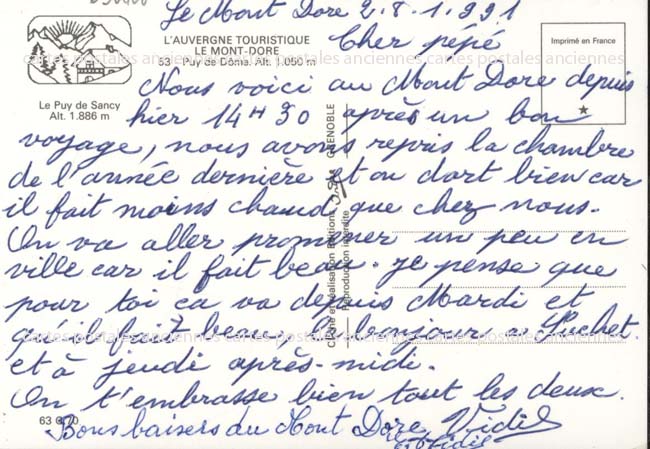 Le Mont Dore 2.8.1.991
L'AUVERGNE TOURISTIQUE
LE MONT-DORE
63 - Puy de Dôme. Alt. 1.050 m
Cher pépé
Imprimé en France
cartes postales anciennes cartes postales anciennes cartes postales anciennes
Le Puy de Sancy
Alt. 1.886 m
Nous voici au Mont Dore depuis
hier 14H30 après un bon
voyage, nous avons repris la chambre
de l'année dernière et on dort bien car
il fait moins chaud que chez nous.
On va aller promener un peu en
ville car il fait beau. je pense que
pour toi ca va depuis Mardi et
qu'il fait beau. bonjour a Luchet.
et à jeudi après-midi.
On t'embrasse bien tout les deux.
Bons baisers du Mont Dore
63 G 70
GRENOBLE
Reproduction interdite
cartes postales anciennes cartes postales anciennes cartes postales anciennes